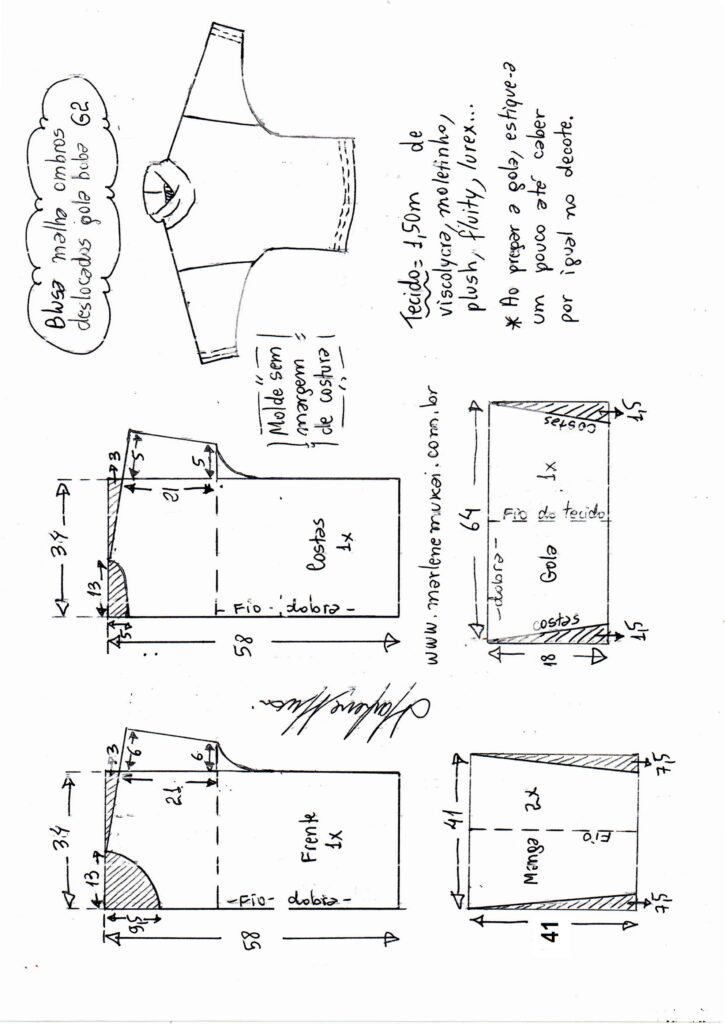 Blusa malha ombros
deslocados gola boba G2
Molde sem
margem
de costura
34
13
3
6
6
21
9,5
Frente
1x
-Fio- dobra-
58
34
13
3
5
5
21
5
Costas
1x
-Fio- dobra-
58
Tecido = 1,50m de
viscolycra, moletinho,
plush, fluity, lurex...
* Ao pregar a gola, estique-a
um pouco até caber
por igual no decote.
www.marlenemukai.com.br
41
Manga 2x
Fio
41
7,5
7,5
64
-dobra-
Gola 1x
Fio do tecido
costas
costas
18
1,5
1,5